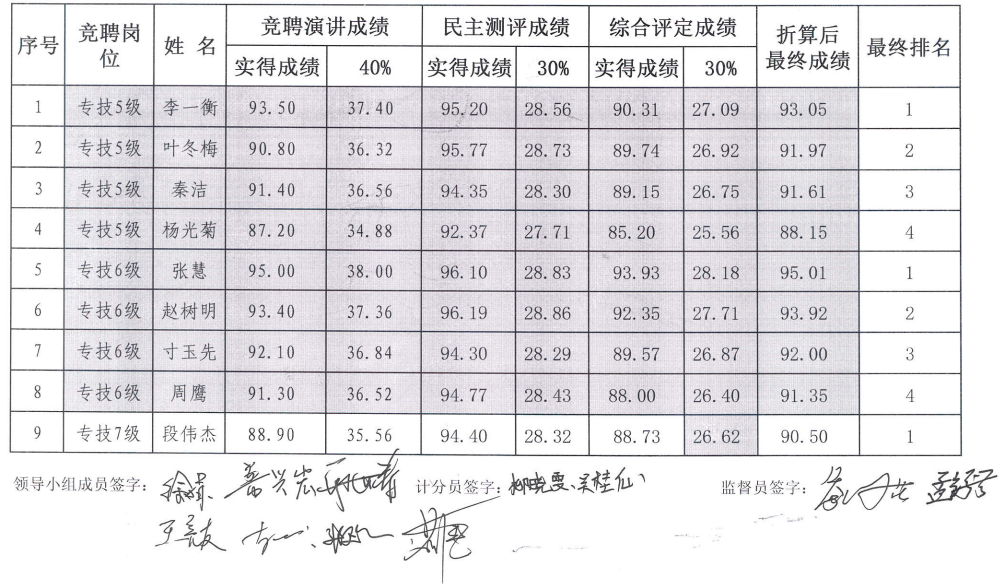 序号 竞聘岗位 姓 名 竞聘演讲成绩 民主测评成绩 综合评定成绩 折算后最终成绩 最终排名
实得成绩 40% 实得成绩 30% 实得成绩 30%
1 专技5级 李一衡 93.50 37.40 95.20 28.56 90.31 27.09 93.05 1
2 专技5级 叶冬梅 90.80 36.32 95.77 28.73 89.74 26.92 91.97 2
3 专技5级 秦洁 91.40 36.56 94.35 28.30 89.15 26.75 91.61 3
4 专技5级 杨光菊 87.20 34.88 92.37 27.71 85.20 25.56 88.15 4
5 专技6级 张慧 95.00 38.00 96.10 28.83 93.93 28.18 95.01 1
6 专技6级 赵树明 93.40 37.36 96.19 28.86 92.35 27.71 93.92 2
7 专技6级 寸玉先 92.10 36.84 94.30 28.29 89.57 26.87 92.00 3
8 专技6级 周鹰 91.30 36.52 94.77 28.43 88.00 26.40 91.35 4
9 专技7级 段伟杰 88.90 35.56 94.40 28.32 88.73 26.62 90.50 1
领导小组成员签字： 计分员签字： 监督员签字：